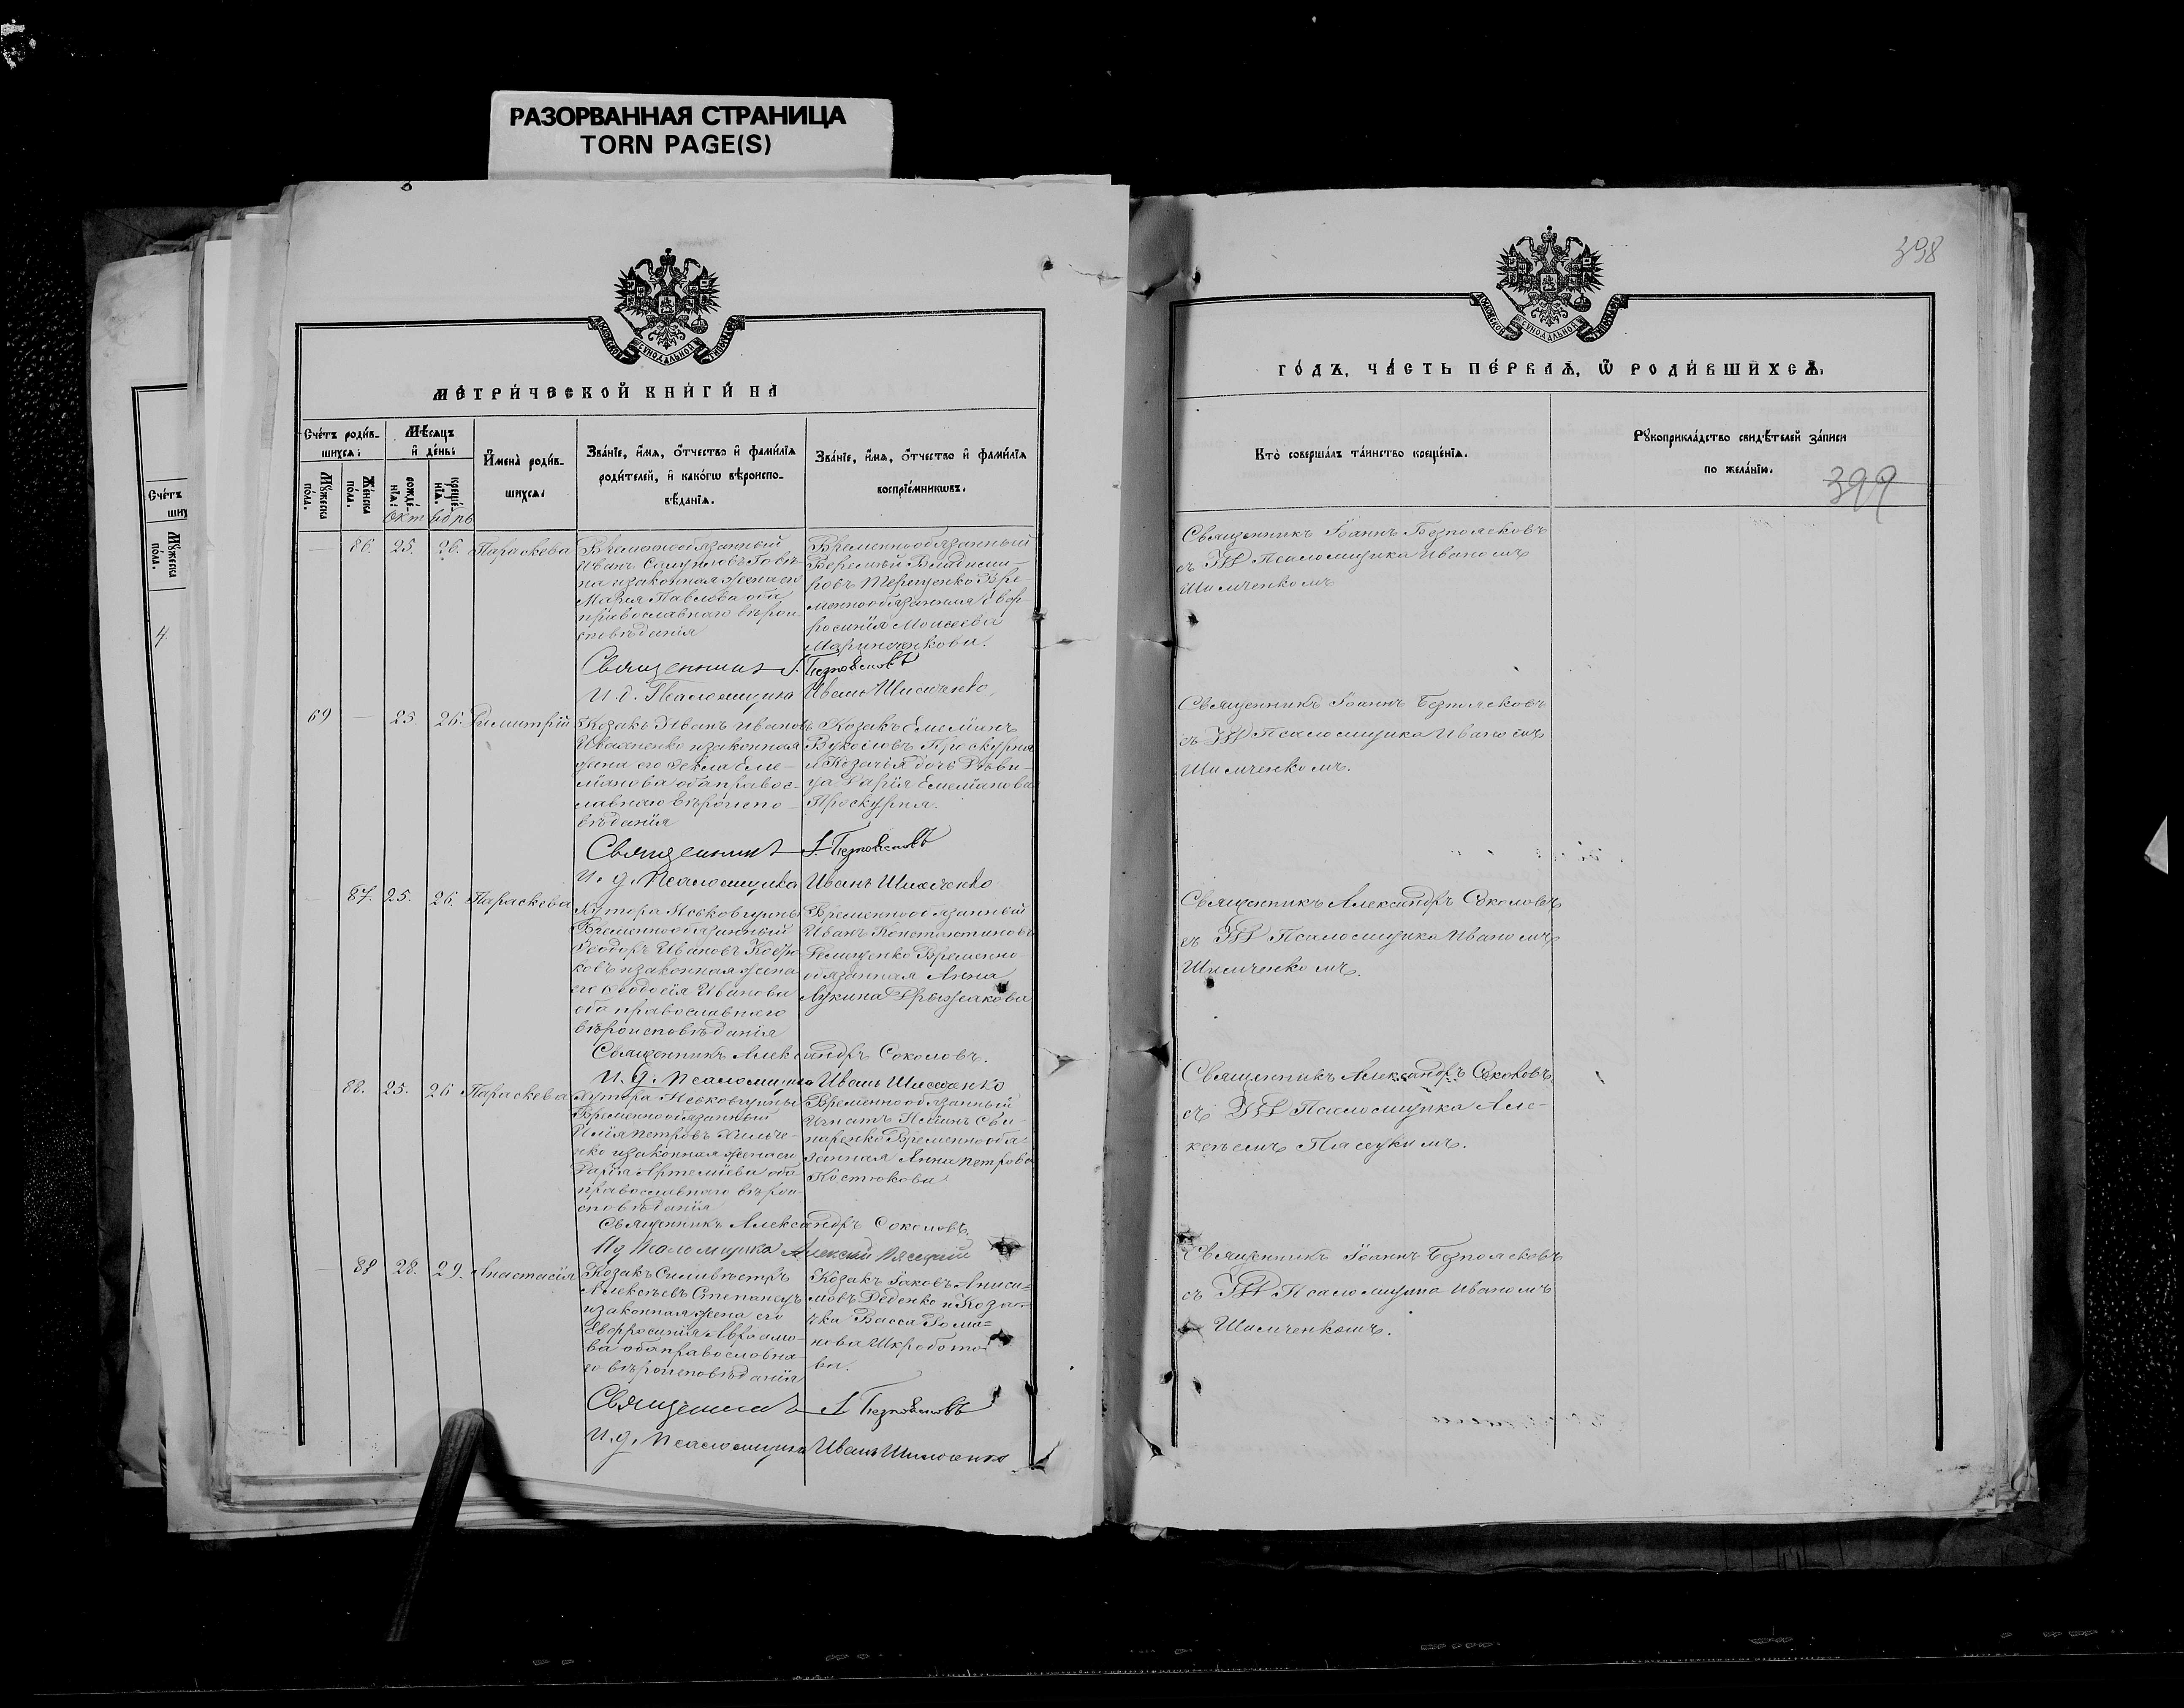 РАЗОРВАННАЯ СТРАНИЦА
TORN PAGE(S)
МЕТРИЧЕСКОЙ КНИГИ НА
Счетъ родив-
шихся:
Мѣсяцъ
и день:
Мужеска пола.
Женска пола.
рожденія:
крещенія.
Окт ябрь
Имена родив-
шихся:
Званіе, имя, отчество и фамилія
родителей, и какогѡ вѣроиспо-
вѣданія.
Званіе, имя, отчество и фамилія
воспріемникѡвъ.
— 86. 25. 26. Параскева
Временнообязанный
Иванъ Самуиловъ
на изаконная жена его
Марія Павлова оба
православнаго вѣрои
сповѣданія
Временнообязанный
Владими-
ровъ Терещенко Вре
меннообязанная Евф
росинія Моисеева
Мариненкова.
Священникъ І. Безполсковъ
И. д. Псаломщика Иванъ Шимченко
69 — 25. 26. Димитрій
Козакъ Иванъ Ивановъ
Ивахненко изаконная
жена его Ѳекла Еме-
лианова оба правос-
лавнаго вѣроиспо-
вѣданія
Козакъ Емеліанъ
Вуколовъ Проскурня
и Козачья дочь дѣви-
ца Дарія Емеліанова
Проскурня.
Священникъ І. Безполсковъ
И. д. Псаломщика Иванъ Шимченко
87. 25. 26. Параскева
Хутора Левковщины
Временнообязанный
Ѳеодоръ Ивановъ
ковъ изаконная жена
его Ѳеодосія Иванова
оба православнаго
вѣроисповѣданія
Временнообязанный
Иванъ Константиновъ
Демещенко Временно-
обязанная Анна
Лукина Дрыжакова
Священникъ Александръ Соколовъ.
И. д. Псаломщика Иванъ Шимченко
88. 25. 26 Параскева
Хутора Левковщины
Временнообязанный
Илія Петровъ Хильче-
нко изаконная жена его
Дарія Артеміева оба
православнаго вѣрои-
сповѣданія
Временнообязанный
Игнатъ Сви-
наренко Временнообя-
занная Анна Петрова
Костюкова
Священникъ Александръ Соколовъ.
Ид Псаломщика Алексѣй Пясецкій
— 89 28. 29. Анастасія
Козакъ Силивестръ
Алексѣевъ Степанецъ
изаконная жена его
Евфросинія
ва оба православна-
го вѣроисповѣданія
Козакъ Іаковъ Аниси-
мовъ Деденко и Коза-
чка Васса Рома=
нова Шкробото-
ва.
Священникъ І. Безполсковъ
И. д. Псаломщика Иванъ Шимченко
398
ГОДЪ, ЧАСТЬ ПЕРВАЯ, Ѡ РОДИВШИХСЯ.
Кто совершалъ таинство крещенія.
Рукоприкладство свидѣтелей записи
по желанію.
399
Священникъ Іоаннъ Безполсковъ
съ ИД Псаломщика Иваномъ
Шимченкомъ
Священникъ Іоаннъ Безполсковъ
съ ИД Псаломщика Иваномъ
Шимченкомъ.
Священникъ Александръ Соколовъ
съ ИД Псаломщика Иваномъ
Шимченкомъ.
Священникъ Александръ Соколовъ
съ ИД Псаломщика Але-
ксѣемъ Пясецкимъ.
Священникъ Іоаннъ Безполсковъ
съ ИД Псаломщика Иваномъ
Шимченкомъ.
Счетъ
Мужеска пола.
4